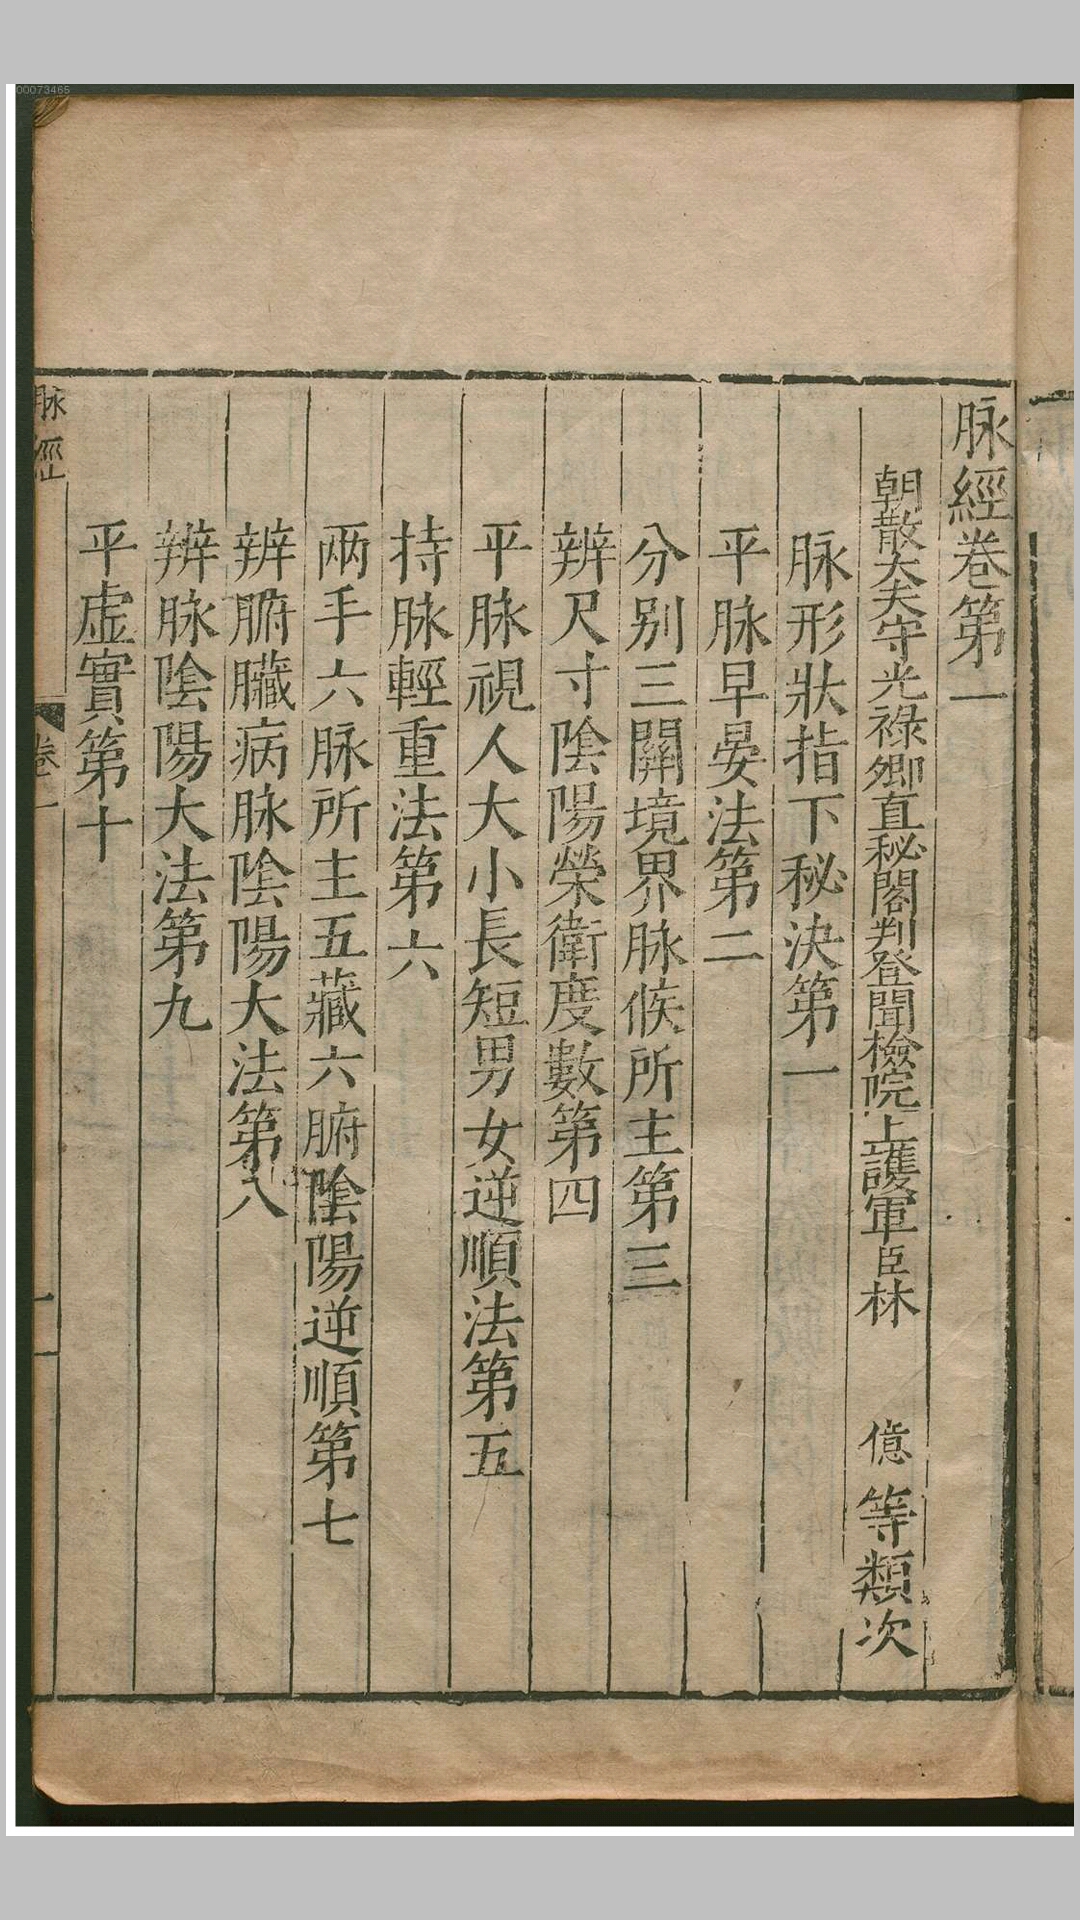 00073465
脉經卷第一
朝散大夫守光祿卿直秘閣判登聞檢院上護軍臣林 億等類次
脉形狀指下秘決第一
平脉早晏法第二
分别三關境界脉候所主第三
辨尺寸陰陽榮衛度數第四
平脉視人大小長短男女逆順法第五
持脉輕重法第六
兩手六脉所主五藏六腑陰陽逆順第七
辨腑臟病脉陰陽大法第八
辨脉陰陽大法第九
平虚實第十
脉經
卷一
一